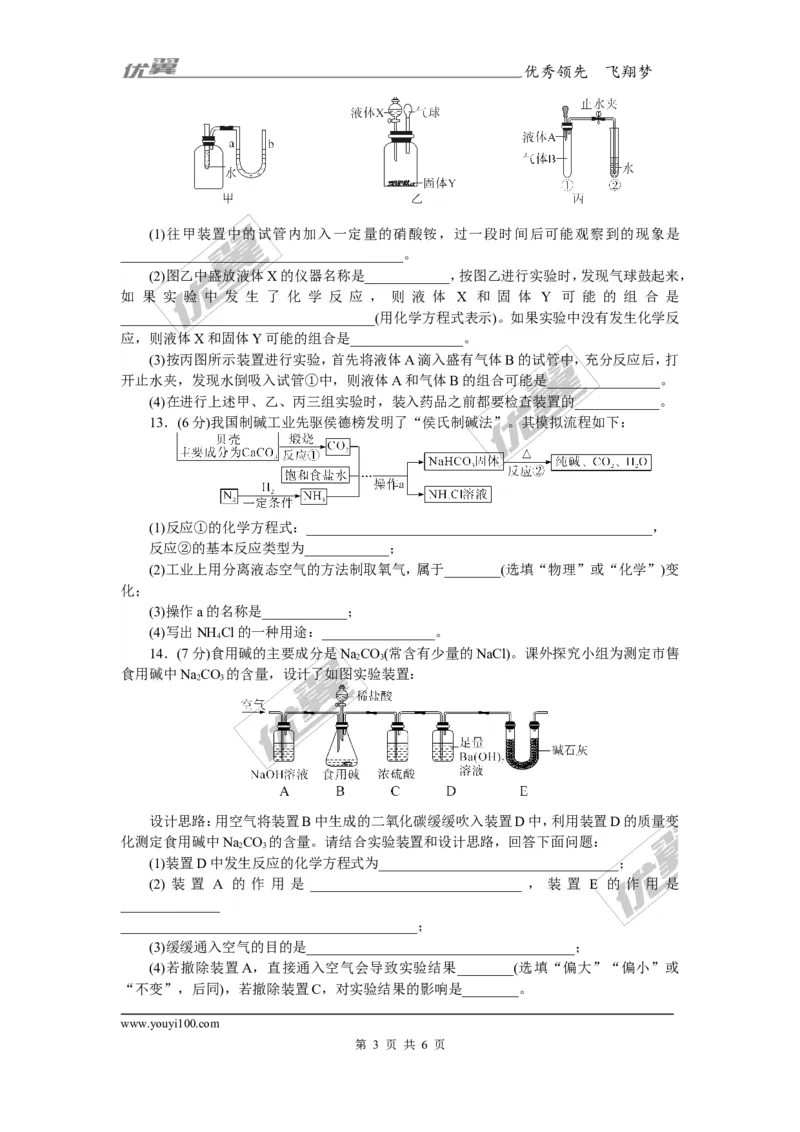 优翼 优秀领先 飞翔梦
液体X 气球 固体Y
止水夹 液体A 气体B 水 ① ②
a b 水
甲 乙 丙
(1)往甲装置中的试管内加入一定量的硝酸铵，过一段时间后可能观察到的现象是
________________________________________。
(2)图乙中盛放液体X的仪器名称是____________,按图乙进行实验时,发现气球鼓起来,
如果实验中发生了化学反应，则液体X和固体Y可能的组合是
____________________________________(用化学方程式表示)。如果实验中没有发生化学反
应，则液体X和固体Y可能的组合是________________。
(3)按丙图所示装置进行实验,首先将液体A滴入盛有气体B的试管中,充分反应后,打
开止水夹，发现水倒吸入试管①中，则液体A和气体B的组合可能是________________。
(4)在进行上述甲、乙、丙三组实验时，装入药品之前都要检查装置的____________。
13．(6分)我国制碱工业先驱侯德榜发明了“侯氏制碱法”。其模拟流程如下：
贝壳 主要成分为CaCO₃ 煅烧 反应① CO₂
饱和食盐水 … 操作a NaHCO₃固体 △ 反应② 纯碱、CO₂、H₂O
N₂ H₂ 一定条件 NH₃ NH₄Cl溶液
(1)反应①的化学方程式：__________________________________________________，
反应②的基本反应类型为____________；
(2)工业上用分离液态空气的方法制取氧气,属于________(选填“物理”或“化学”)变
化；
(3)操作a的名称是____________；
(4)写出NH₄Cl的一种用途：________________。
14．(7分)食用碱的主要成分是Na₂CO₃(常含有少量的NaCl)。课外探究小组为测定市售
食用碱中Na₂CO₃的含量，设计了如图实验装置：
空气 稀盐酸 足量Ba(OH)₂溶液 碱石灰
NaOH溶液 食用碱 浓硫酸
A B C D E
设计思路：用空气将装置B中生成的二氧化碳缓缓吹入装置D中,利用装置D的质量变
化测定食用碱中Na₂CO₃的含量。请结合实验装置和设计思路，回答下面问题：
(1)装置D中发生反应的化学方程式为__________________________________；
(2)装置A的作用是______________________________，装置E的作用是
______________
__________________________________________；
(3)缓缓通入空气的目的是______________________________________；
(4)若撤除装置A，直接通入空气会导致实验结果________(选填“偏大”“偏小”或
“不变”，后同)，若撤除装置C，对实验结果的影响是________。
www.youyi100.com
第 3 页 共 6 页